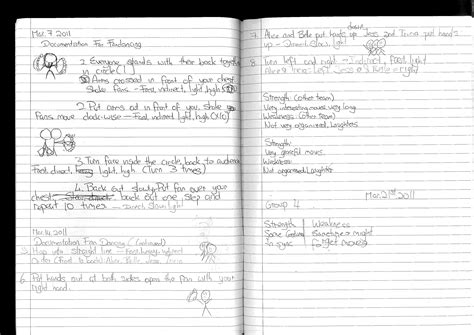 Mar. 7 2011
Documentation For Fandancing
2 Everyone stands with their back together
in circle (1)
Arms crossed in front of your chest
Shake Fans - Fast, indirect, light, high
2. Put arms out in front of you, shake
Fans move clock-wise - Fast, indirect, light, high (x10)
3. Turn fans inside the circle, back to audience
Fast, direct, light, high (Turn 3 times)
4. Back out slowly Put fan over your
chest, back out one step and
repeat 10 times - Direct, slow, light
Mar. 14 2011
Documentation Fan Dancing (Continued)
5. Hop into straight line - Fast, heavy, indirect
Order (Front to back): Alice, Belle, Jess, Tricia
6. Put hands out at both sides open the fan with your
right hand.
7. Alice and Belle put hands down Jess and Tricia put hands
up - Direct, slow, light
8. Turn left and right - Indirect, fast, light
Strength: (other team)
Very interesting moves, very long
Weakness (other team)
Not very organized, laughters
Strength:
Very graceful moves
Weakness
Not organized, laughter
Mar. 21st 2011
Group 4
Strength | Weakness
Sometimes might
In sync | forget moves